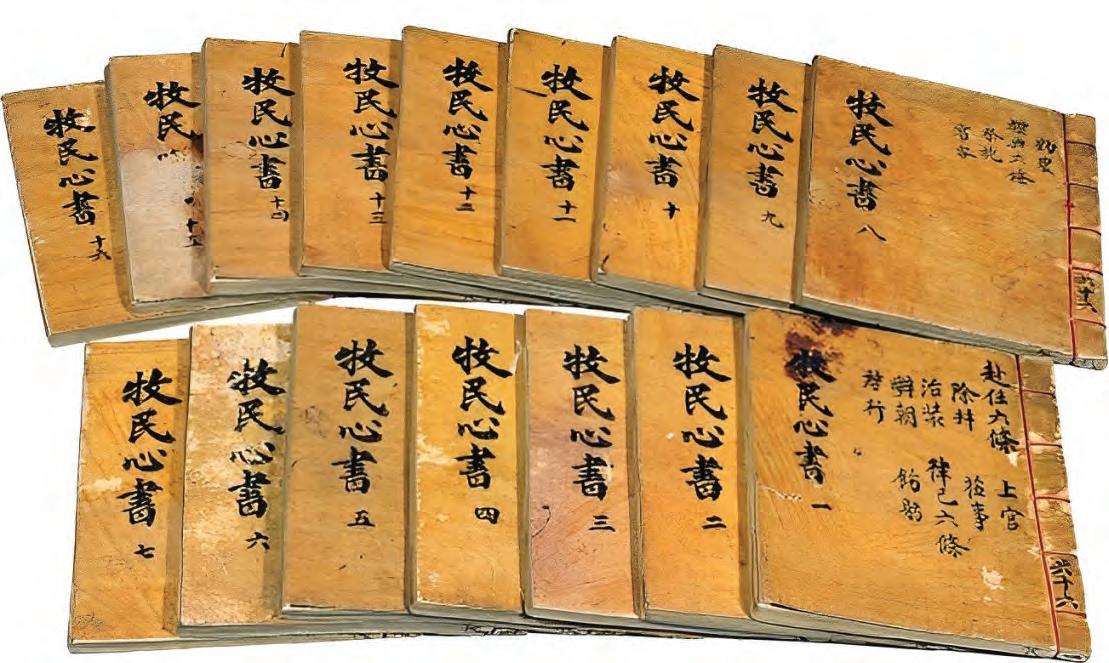 禮典六條
祭祀
賓客
牧民心書 八
牧民心書 九
牧民心書 十
牧民心書 十一
牧民心書 十二
牧民心書 十三
牧民心書 十四
牧民 十五
牧民心書 十六
赴任六條 上官
除拜 莅事
治裝 律己六條
辭朝 飭躬
啓行
牧民心書 一
牧民心書 二
牧民心書 三
牧民心書 四
牧民心書 五
牧民心書 六
牧民心書 七